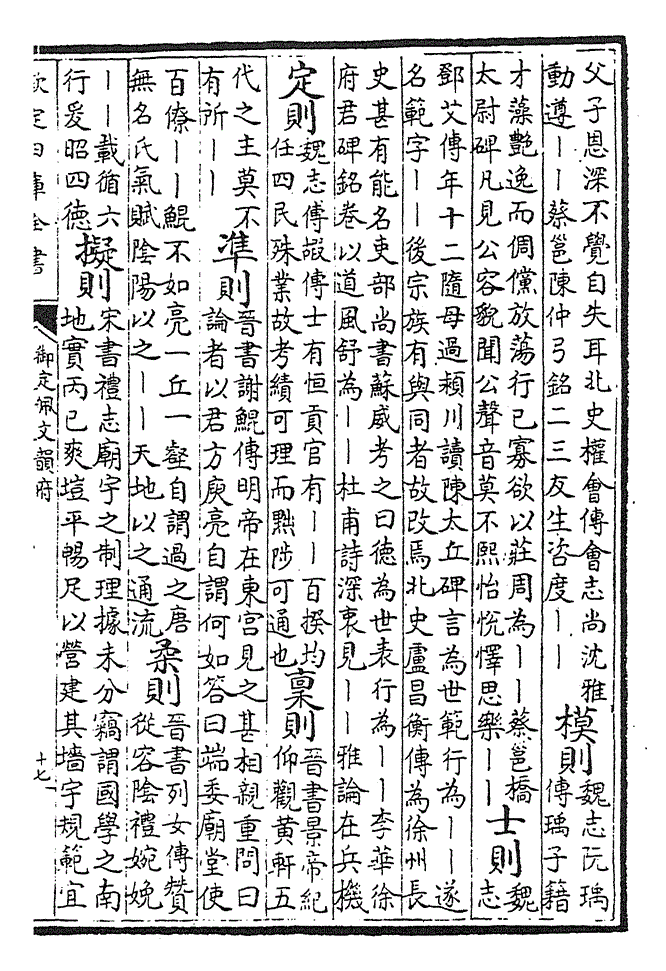 父子恩深不覺自失耳北史權會傳會志尚沈雅
動遵丨丨蔡邕陳仲弓銘二三友生咨度丨丨
模則
魏志阮瑀
傳瑀子籍
才藻艷逸而倜儻放蕩行已寡欲以莊周為丨丨蔡邕橋
太尉碑凡見公容貌聞公聲音莫不熙怡悅懌思樂丨丨
士則
魏
志
鄧艾傳年十二隨母過潁川讀陳太丘碑言為世範行為丨丨遂
名範字丨丨後宗族有與同者故改焉北史盧昌衡傳為徐州長
史甚有能名吏部尚書蘇威考之曰德為世表行為丨丨李華徐
府君碑銘卷以道風舒為丨丨杜甫詩深衷見丨丨雅論在兵機
定則
魏志傳嘏傳士有恒貢官有丨丨百揆均
任四民殊業故考績可理而黜陟可通也
稟則
晉書景帝紀
仰觀黃軒五
代之主莫不
有所丨丨
準則
晉書謝鯤傳明帝在東宮見之甚相親重問曰
論者以君方庾亮自謂何如答曰端委廟堂使
百僚丨丨鯤不如亮一丘一壑自謂過之唐
無名氏氣賦陰陽以之丨丨天地以之通流
柔則
晉書列女傳贊
從容陰禮婉娩
丨丨載循六
行爰昭四德
擬則
宋書禮志廟宇之制理據未分竊謂國學之南
地實丙巳爽塏平暢足以營建其墻宇規範宜
欽定四庫全書
御定佩文韻府
十七